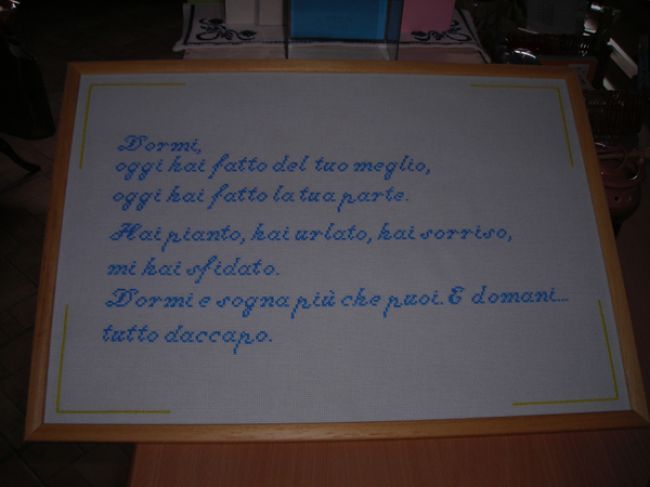 Dormi,
oggi hai fatto del tuo meglio,
oggi hai fatto la tua parte.
Hai pianto, hai urlato, hai sorriso,
mi hai sfidato.
Dormi e sogna più che puoi. E domani...
tutto daccapo.